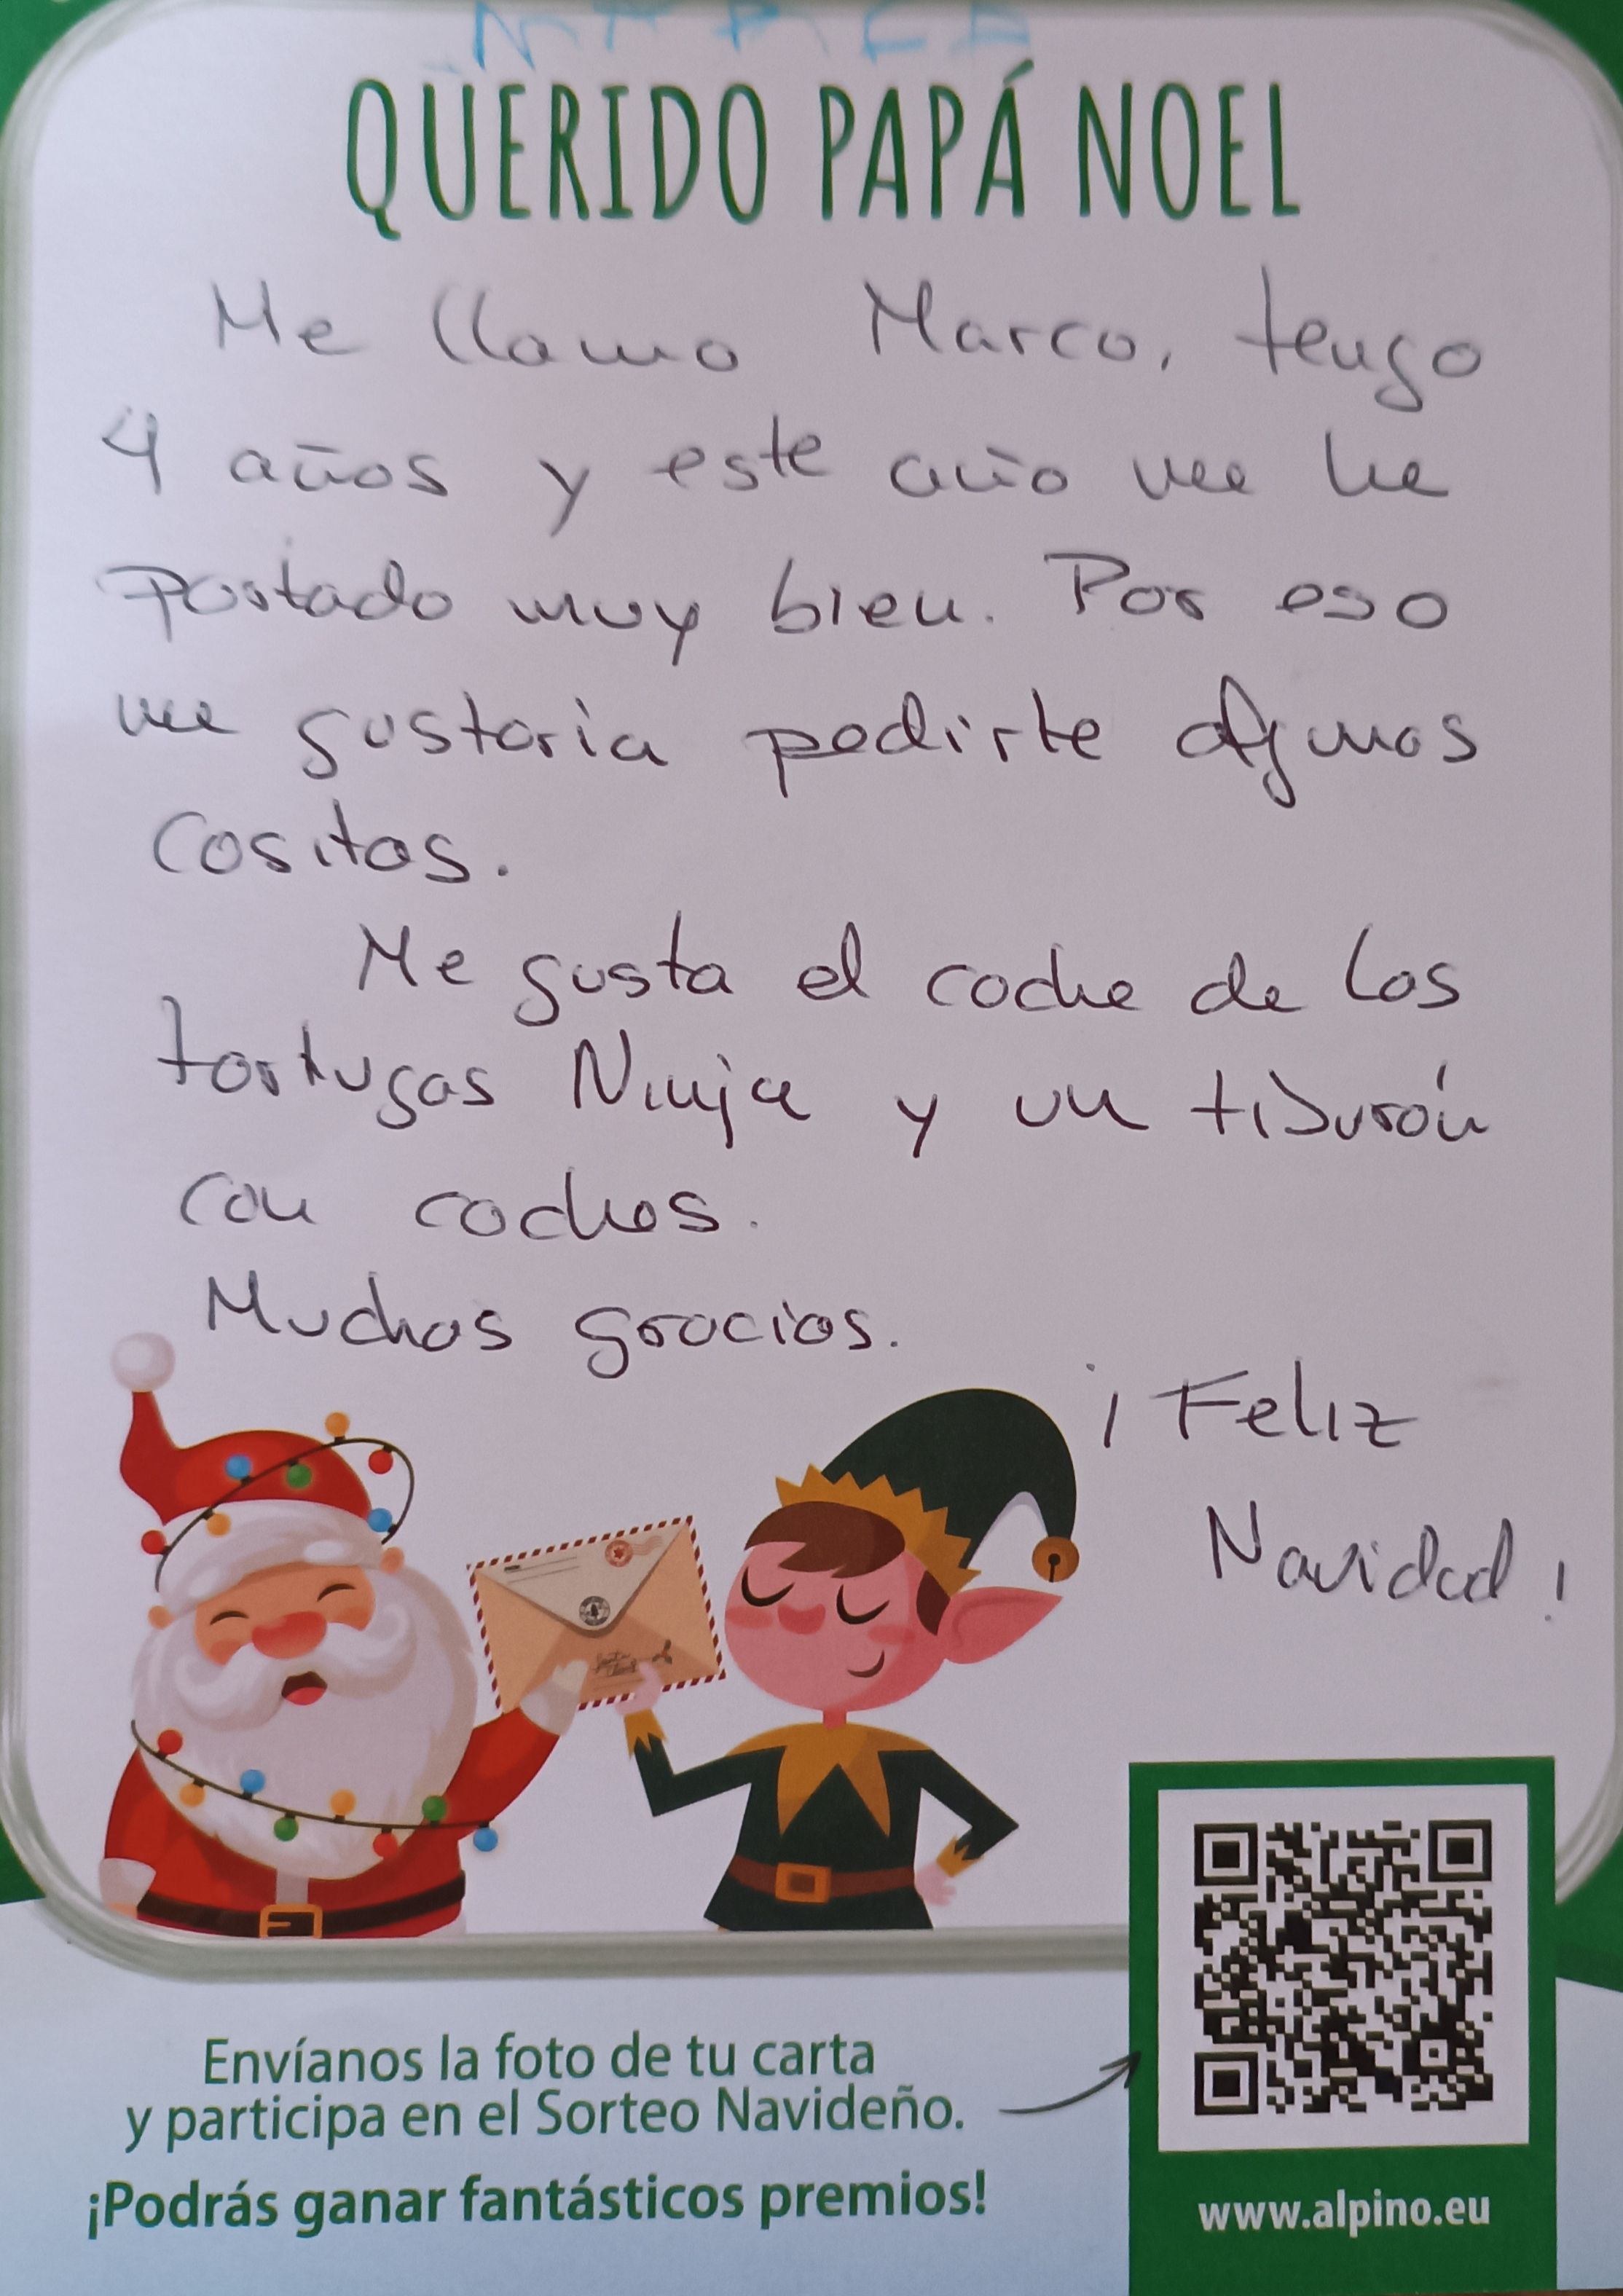 QUERIDO PAPÁ NOEL
Me llamo Marco, tengo
4 años y este año me he
portado muy bien. Por eso
me gustaria pedirte algunas
cositas.
Me gusta el coche de las
tortugas Ninja y un tiburón
con coches.
Muchas gracias.
¡Feliz
Navidad!
Envíanos la foto de tu carta
y participa en el Sorteo Navideño.
¡Podrás ganar fantásticos premios!
www.alpino.eu